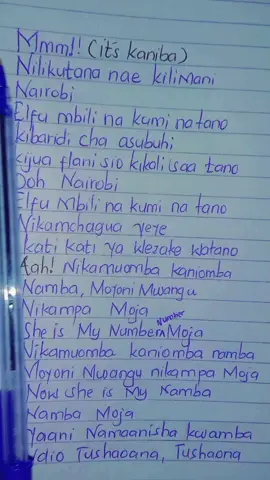 Mmm!! (it's kaniba)
Nilikutana nae kilimani
Nairobi
Elfu mbili na kumi na tano
kibaridi cha asubuhi
kijua flani sio kikali saa tano
Ooh Nairobi
Elfu Mbili na kumi na tano
Nikamchagua yeye
kati kati ya wezake watano
Aah! Nikamuomba kaniomba
Namba, Moyoni Mwangu
Nikampa Moja
She is My Number Moja
Number
Nikamuomba kaniomba namba
Moyoni Mwangu nikampa Moja
Now she is My Namba
Namba Moja
Yaani Namaanisha kwamba
Ndio Tushaoana, Tushaona